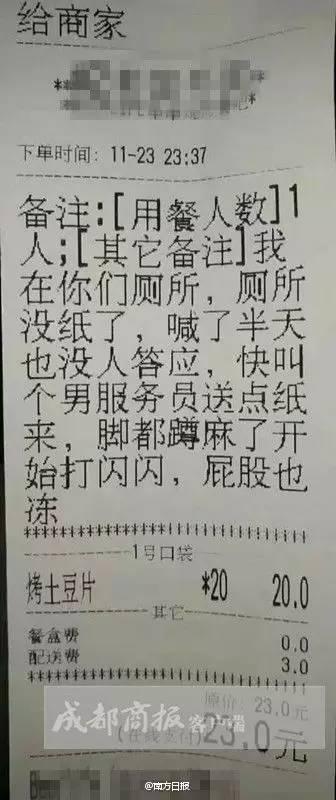 给商家
下单时间: 11-23 23:37
备注:[用餐人数]1
人;[其它备注]我
在你们厕所，厕所
没纸了，喊了半天
也没人答应，快叫
个男服务员送点纸
来，脚都蹲麻了开
始打闪闪，屁股也
冻
1号口袋
烤土豆片 *20 20.0
其它
餐盒费 0.0
配送费 3.0
原价: 23.0元
成都商报 客户端
(在线支付)23.0元
@南方日报